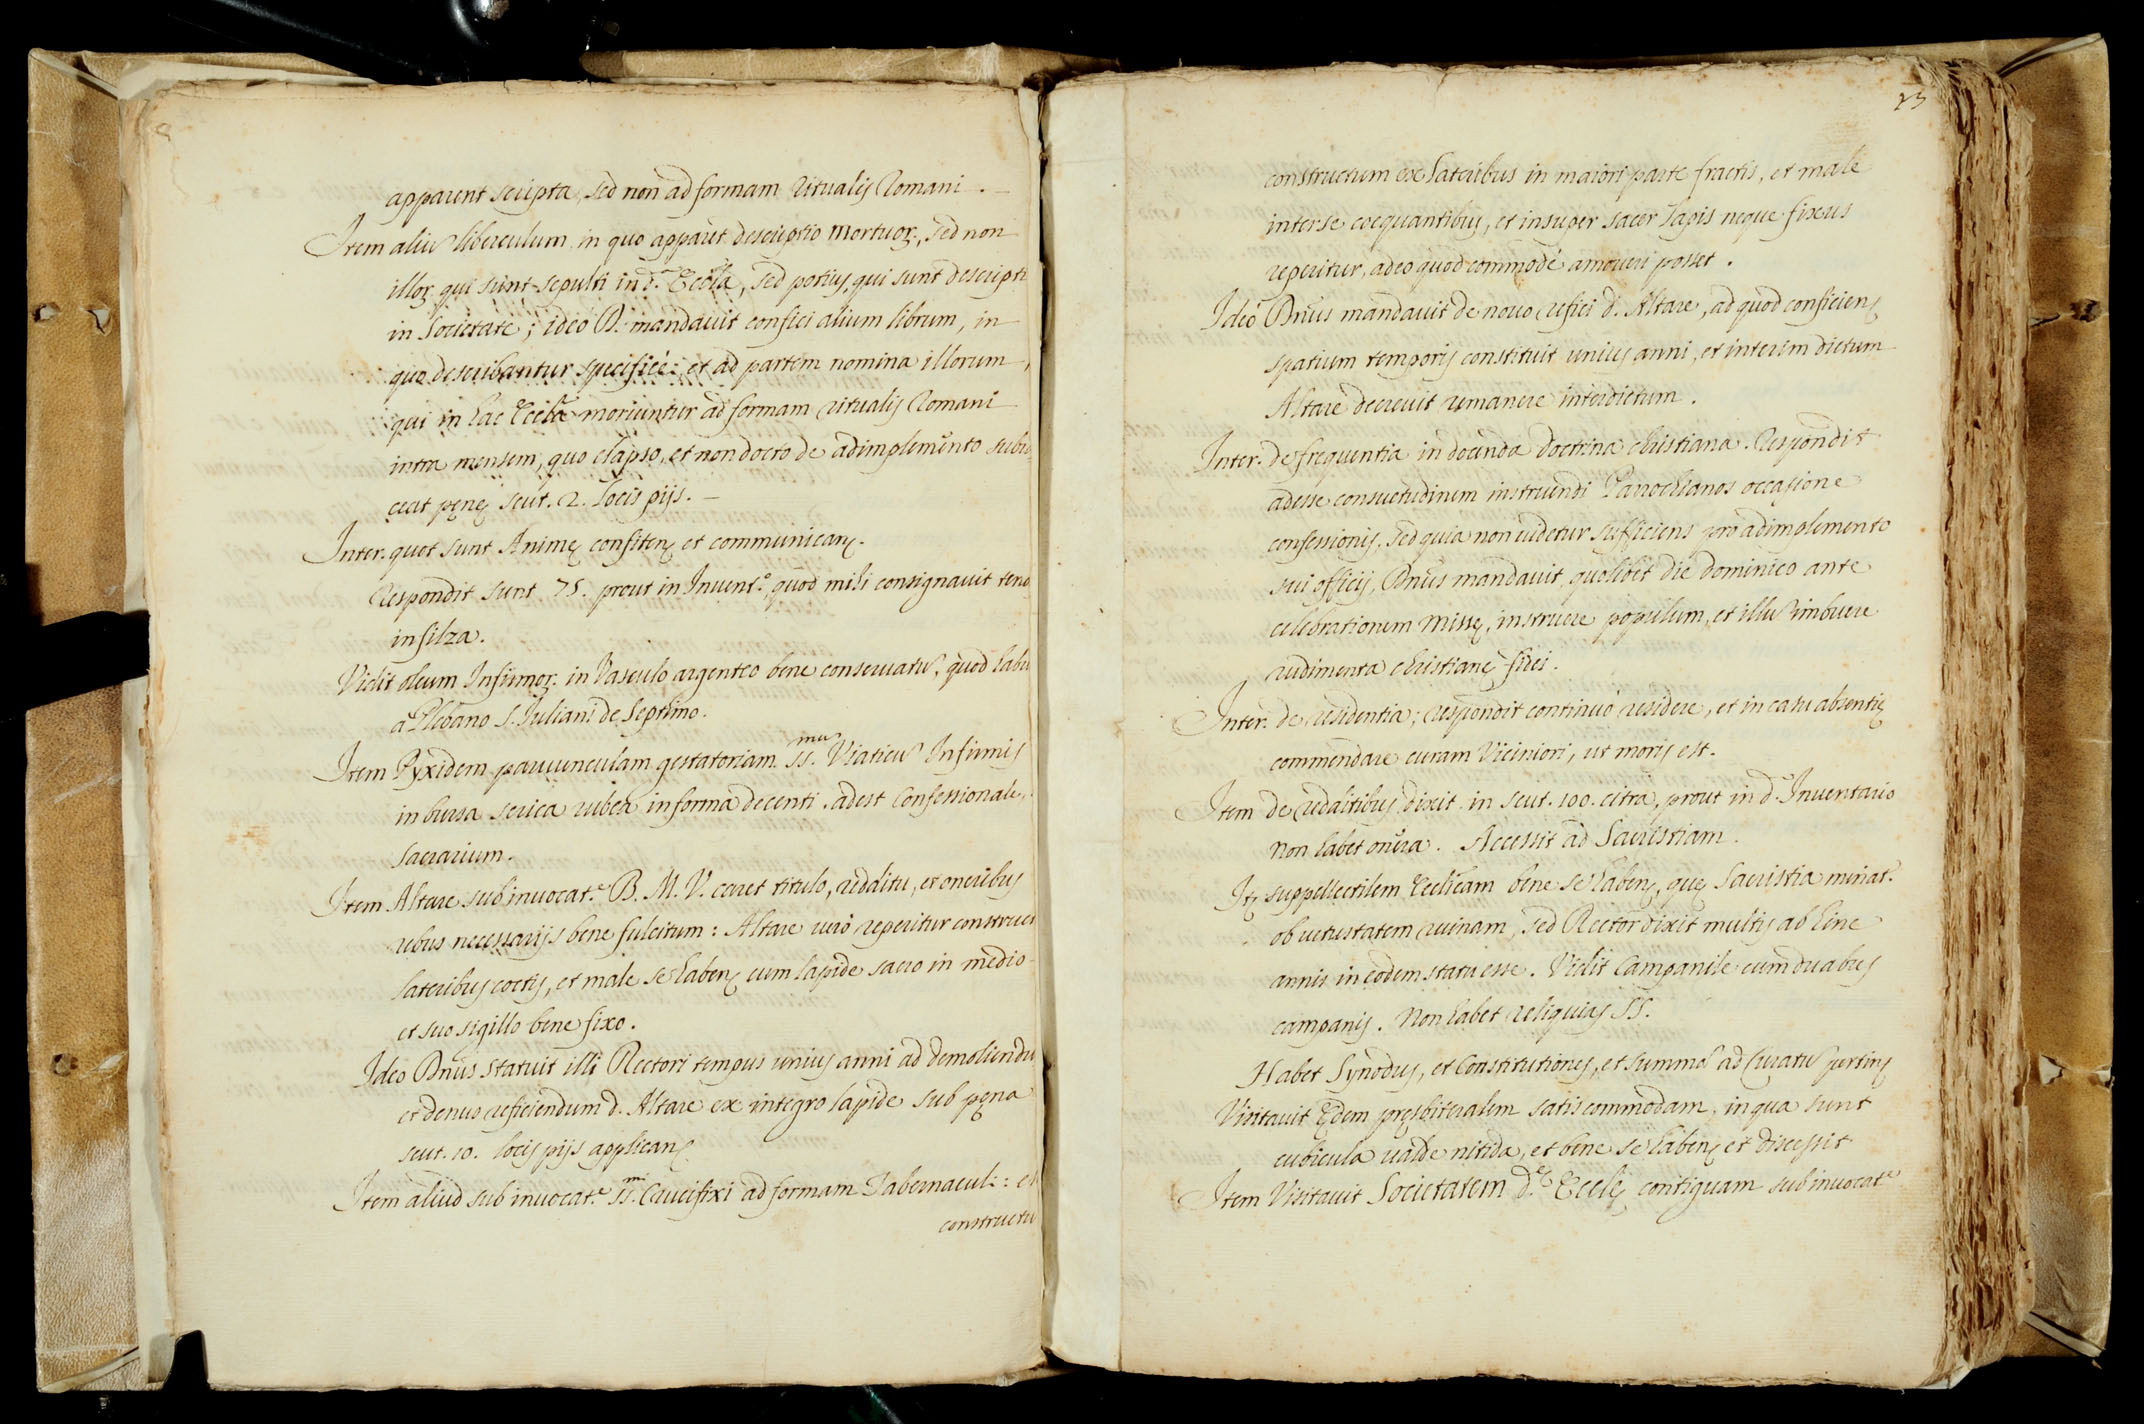 apparent scripta, sed non ad formam Ritualis Romani.
Item aliu libreculum in quo apparet descriptio mortuor., sed non
illor. qui sunt sepulti in d.ª Eccla, sed potius, qui sunt descripti
in Societate; ideo D. mandavit confici alium librum, in
quo describantur specificè, et ad partem nomina illorum,
qui in hac Eccla moriuntur ad formam ritualis Romani
intra mensem, quo elapso, et non docto de adimplemento subia
ceat penę scut. 2. locis pijs.
Inter. quot sunt Animę confiten. et communican.
Respondit sunt 75. prout in Invent.º, quod mihi consignavit teno
in filza.
Vidit oleum Infirmor. in Vasculo argenteo bene conservatu, quod habu
a Plebano S. Iuliani de Septimo.
Item Pyxidem parvunculam gestatoriam SS.mu Viaticu Infirmis
in bursa serica rubea in forma decenti. adest Confessionale,
Sacrarium.
Item Altare sub invocat.e B. M. V. caret titulo, redditu, et oneribus
rebus necessarijs bene fulcitum: Altare verò reperitur construct
lateribus coctis, et male se haben. cum lapide sacro in medio
et suo sigillo bene fixo.
Ideo Dnus statuit illi Rectori tempus unius anni ad demoliendu
et denuo reficiendum d. Altare ex integro lapide sub pęna
scut. 10. locis pijs applican.
Item aliud sub invocat.e SS.m Crucifixi ad formam Tabernacul.: et
constructu
23
constructum ex lateribus in maiori parte fractis, et male
inter se coequantibus, et insuper sacer lapis neque fixus
reperitur, adeo quod commodè amoveri posset.
Ideò Dnus mandavit de novo refici d. Altare, ad quod conficien.
spatium temporis constituit unius anni, et interim dictum
Altare decrevit remanere interdictum.
Inter. de frequentia in docenda doctrina christiana. Respondit
adesse consuetudinem instruendi Parochianos occasione
confessionis, sed quia non videtur sufficiens pro adimplemento
sui officij, Dnus mandavit, quolibet die dominico ante
celebrationem Missę, instruere populum, et illu imbuere
rudimenta christianę fidei.
Inter. de residentia; respondit continuò residere, et in casu absentię
commendare curam Viciniori, ut moris est.
Item de redditibus dixit in scut. 100. citra, prout in d.º Inventario
non habet onera. Accessit ad Sacristiam.
It. suppellectilem Ecclicam bene se haben., quę Sacristia minat.
ob vetustatem ruinam, sed Rector dixit multis ab hinc
annis in eodem statu esse. Vidit Campanile cum duabus
campanis. Non habet reliquias SS.
Habet Synodus, et Constitutiones, et summa ad Curatu pertin.
Visitavit Ędem presbiteralem satis commodam, in qua sunt
cubicula valde nitida, et bene se haben. et discessit
Item Visitavit Societatem d.ę Ecclę contiguam sub invocat.e